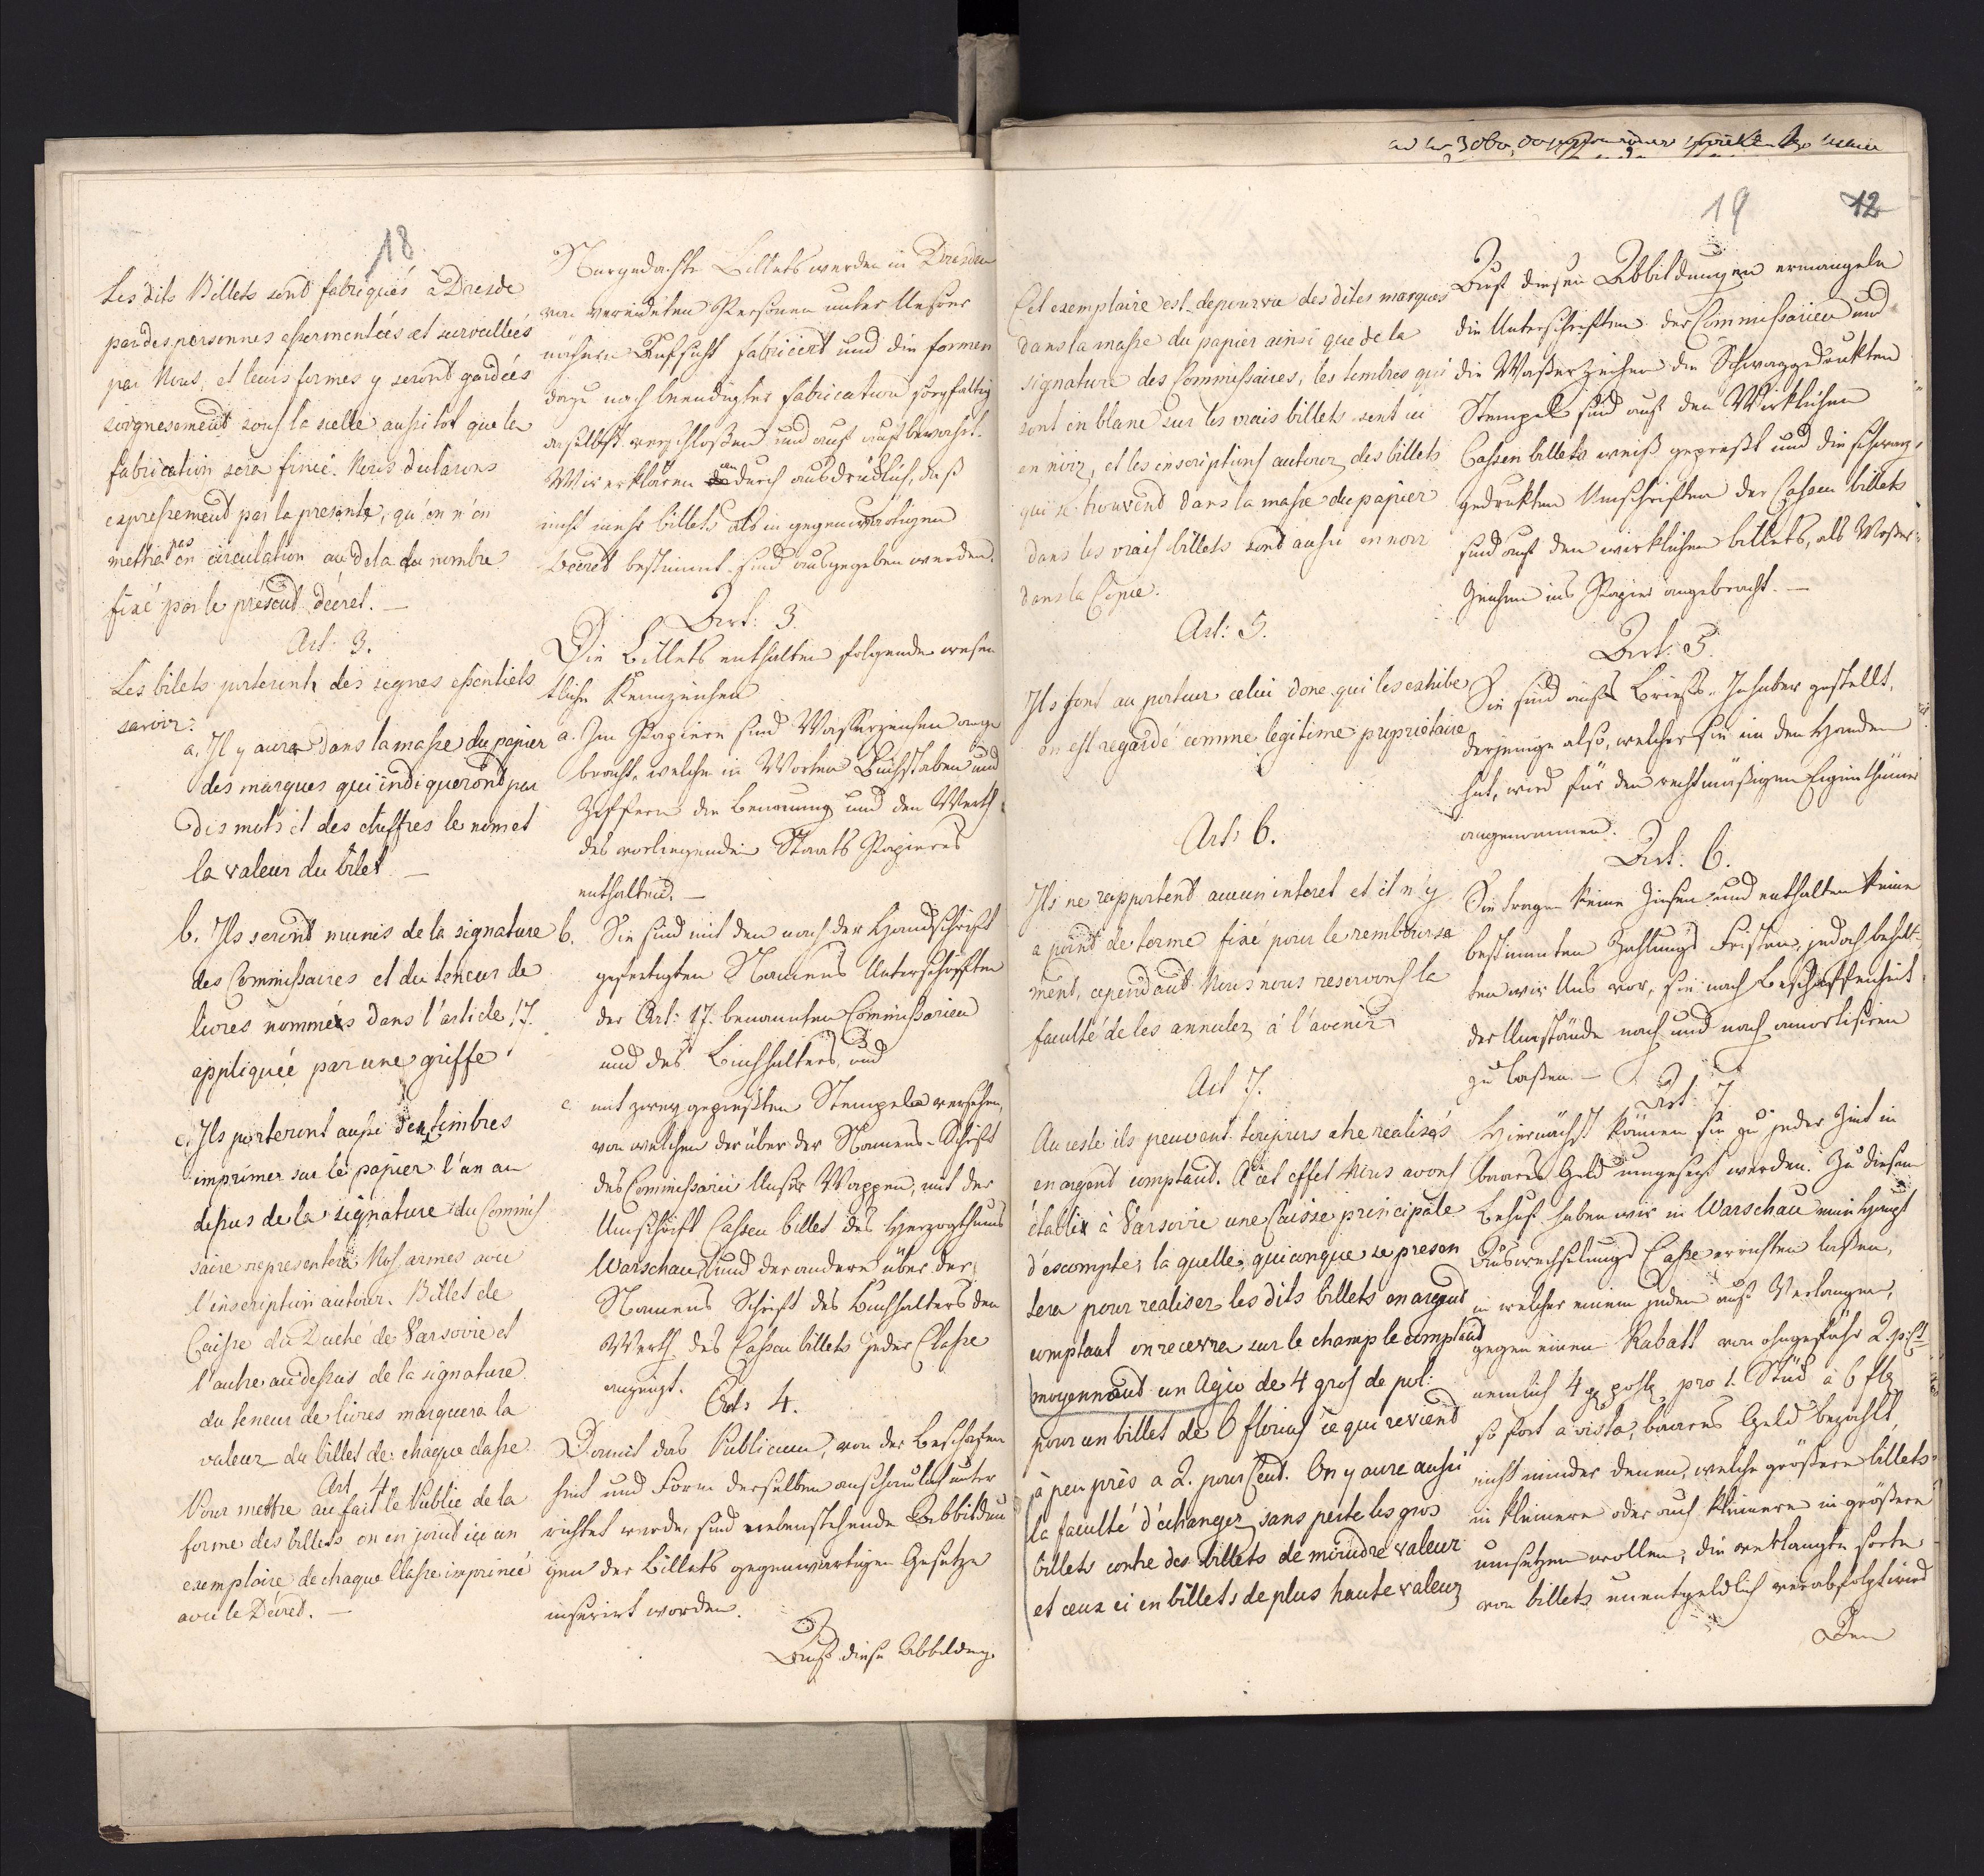 18
Les dits Billets sont fabriqués à Dresde
par des personnes essermentées et surveillées
par Nous, et leurs formes y seront gardées
soigneusement sous la scelle aussitot que la
fabrication sera finie. Nous declarons
expressement par la presente, qu'on n'en
mettra pas en circulation au dela du nombre
fixé par le présent décret. —
Art: 3.
Les bilets porteront des signes essentiels
savoir:
a. Il y aura dans la masse du papier
des marques qui indiqueront par
des mots et des chiffres le nom et
la valeur du bilet —
b. Ils seront munis de la signature
des Commissaires et du teneur de
livres nommés dans l'article 17.
appliquée par une griffe
c. Ils porteront aussi des timbres
imprimés sur le papier l'un au
dessus de la signature du Commis
saire representera Nos armes avec
l'inscription autour. Billet de
Caisse du Duché de Varsovie et
l'autre au dessus de la signature
du teneur de livres marquera la
valeur du billet de chaque classe
Art 4
Pour mettre au fait le Public de la
forme des billets on en joint ici un
exemplaire de chaque Classe imprimé
avec le Décret. —
Vorgedachte Billets werden in Dresden
von vereideten Personen unter Unsrer
nähern Aufsicht fabricirt und die Formen
dazu nach beendigter Fabrication sorgfältig
daselbst verschloßen und auf aufbewahrt.
Wir erklären andurch ausdrücklich, daß
nicht mehr billets als in gegenwärtigen
Decret bestimmt sind ausgegeben werden.
Art: 3.
Die Billets enthalten folgende wesen
tliche Kennzeichen
a. Im Papiere sind Wasserzeichen ange
bracht, welche in Worten Buchstaben und
Ziffern die Benennung und den Werth
des vorliegenden Staats Papieres
enthalten. —
b. Sie sind mit den nach der Handschrift
gefertigten Namens Unterschriften
der Art: 17. benannten Commissarien
und des Buchhalters, und
c. mit zwey gepreßten Stempeln versehen,
von welchen der über der Namens-Schrift
des Commissarii Unser Wappen, mit der
Umschrift Cassen billet des Herzogthums
Warschau, und der andere über der
Namens Schrift des Buchhalters den
Werth des Cassen billets jeder Classe
anzeigt.
Art: 4.
Damit das Publicum, von der Beschafen
heit und Form derselben anschaulich unter
richtet werde, sind nebenstehende Abbildun
gen der Billets gegenwärtigen Gesetze
inserirt worden.
Auf diese Abbildung.
19 12
Cet exemplaire est depourvu des dites marques
dans la masse du papier ainsi que de la
signature des Commissaires, les timbres qui
sont en blanc sur les vrais billets sont ici
en noir, et les inscriptions autour des billets
qui se trouvend dans la masse du papier
dans les vrais billets sont aussi en noir
dans la Copie.
Art: 5.
Ils sont au porteur celui donc qui les exhibe
en est regardé comme legitime proprietaire
Art: 6.
Ils ne rapportent aucun interet et il n'y
a point de terme fixé pour le rembourse
ment, cependant Nous nous reservons la
faculté de les annuler à l'avenir
Art 7.
Au reste ils peuvent toujours etre realisés
en argent comptant. A cet effet Nous avons
établie à Varsovie une Caisse principale
d'escompte, la quelle, quiconque se presen
tera pour realiser les dits billets en argent
comptant en recevra sur le champ le comptant
moyennant un Agio de 4 gros de pol:
pour un billet de 6 florins ce qui reviend
à peu près a 2. pour Cent. On y aura aussi
la faculté d'échanger sans perte les gros
billets contre des billets de moindre valeur
et ceux ci en billets de plus haute valeur
Auf diesen Abbildungen ermangeln
die Unterschriften der Commissarien und
die Wasserzeichen die Schwarzgedrukten
Stempel sind auf den Wirklichen
Cassen billets weiß gepreßt und die schwarz
gedrukten Umschriften der Cassen billets
sind auf den wirklichen billets, als Wasser
Zeichen ins Papier angebracht. —
Art: 5.
Sie sind aufs Briefs-Inhaber gestellt,
derjenige also, welcher sie in den Handen
hat, wird für den rechtmäßigen Eigenthümer
angenommen.
Art. 6.
Sie tragen keine Zinsen und enthalten keine
bestimmten Zahlungs Fristen, jedoch behal
ten wir Uns vor, sie nach Beschaffenheit
der Umstände nach und nach amortisiren
zu lassen. —
Art: 7
Hiernächst können sie zu jeder Zeit in
baares Geld umgesezt werden. Zu diesem
Behuf haben wir in Warschau eine Haupt
Auswechselungs Casse errichten laßen,
in welcher einem jeden auf Verlangen,
gegen einen Rabatt von ohngefähr 2. p. Ct
nemlich 4 g pohl pro 1. Stück à 6 fl
so fort a vista, baares Geld bezahlt,
nicht minder denen, welche größere billets
in kleinere oder auch kleinere in größere
umsetzen wollen, die verlangte sorte
von billets unentgeldlich verabfolgt wird
Den